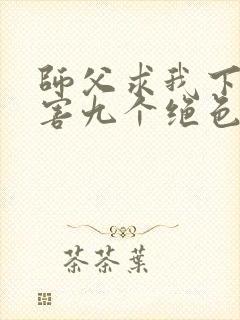 師父求我下
害九个绝色
茶茶葉